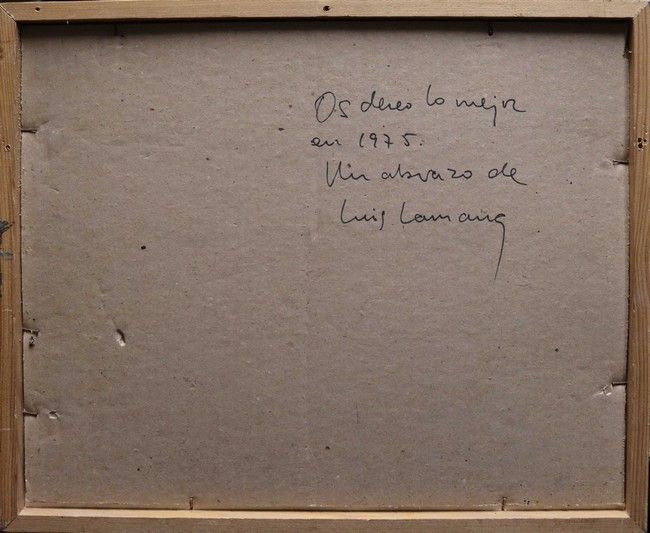 Os deseo lo mejor
en 1975.
Un abrazo de
Luis